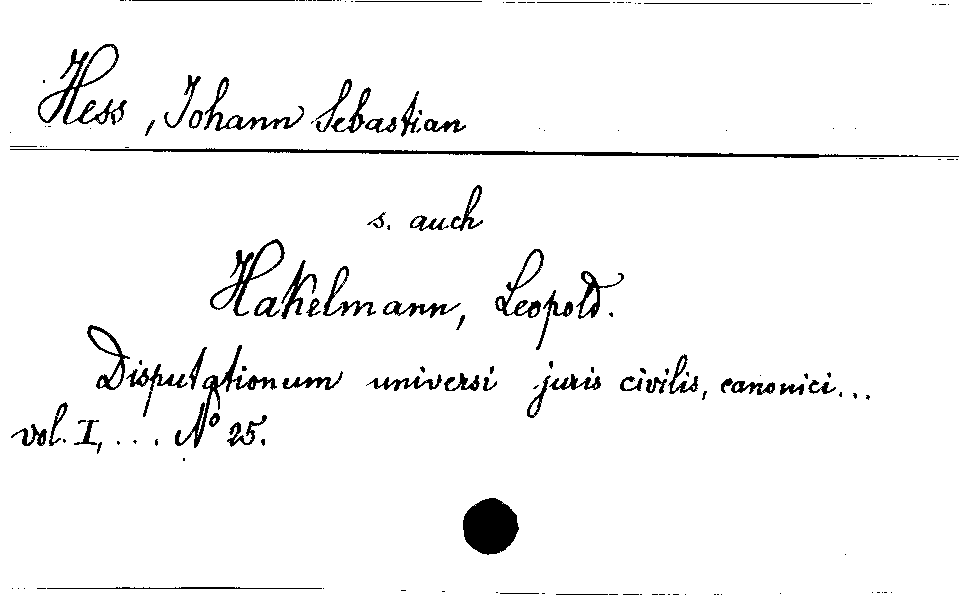 Hess, Johann Sebastian
s. auch
Hakelmann, Leopold.
Disputationum universi juris civilis, canonici...
vol. I, ... No 25.